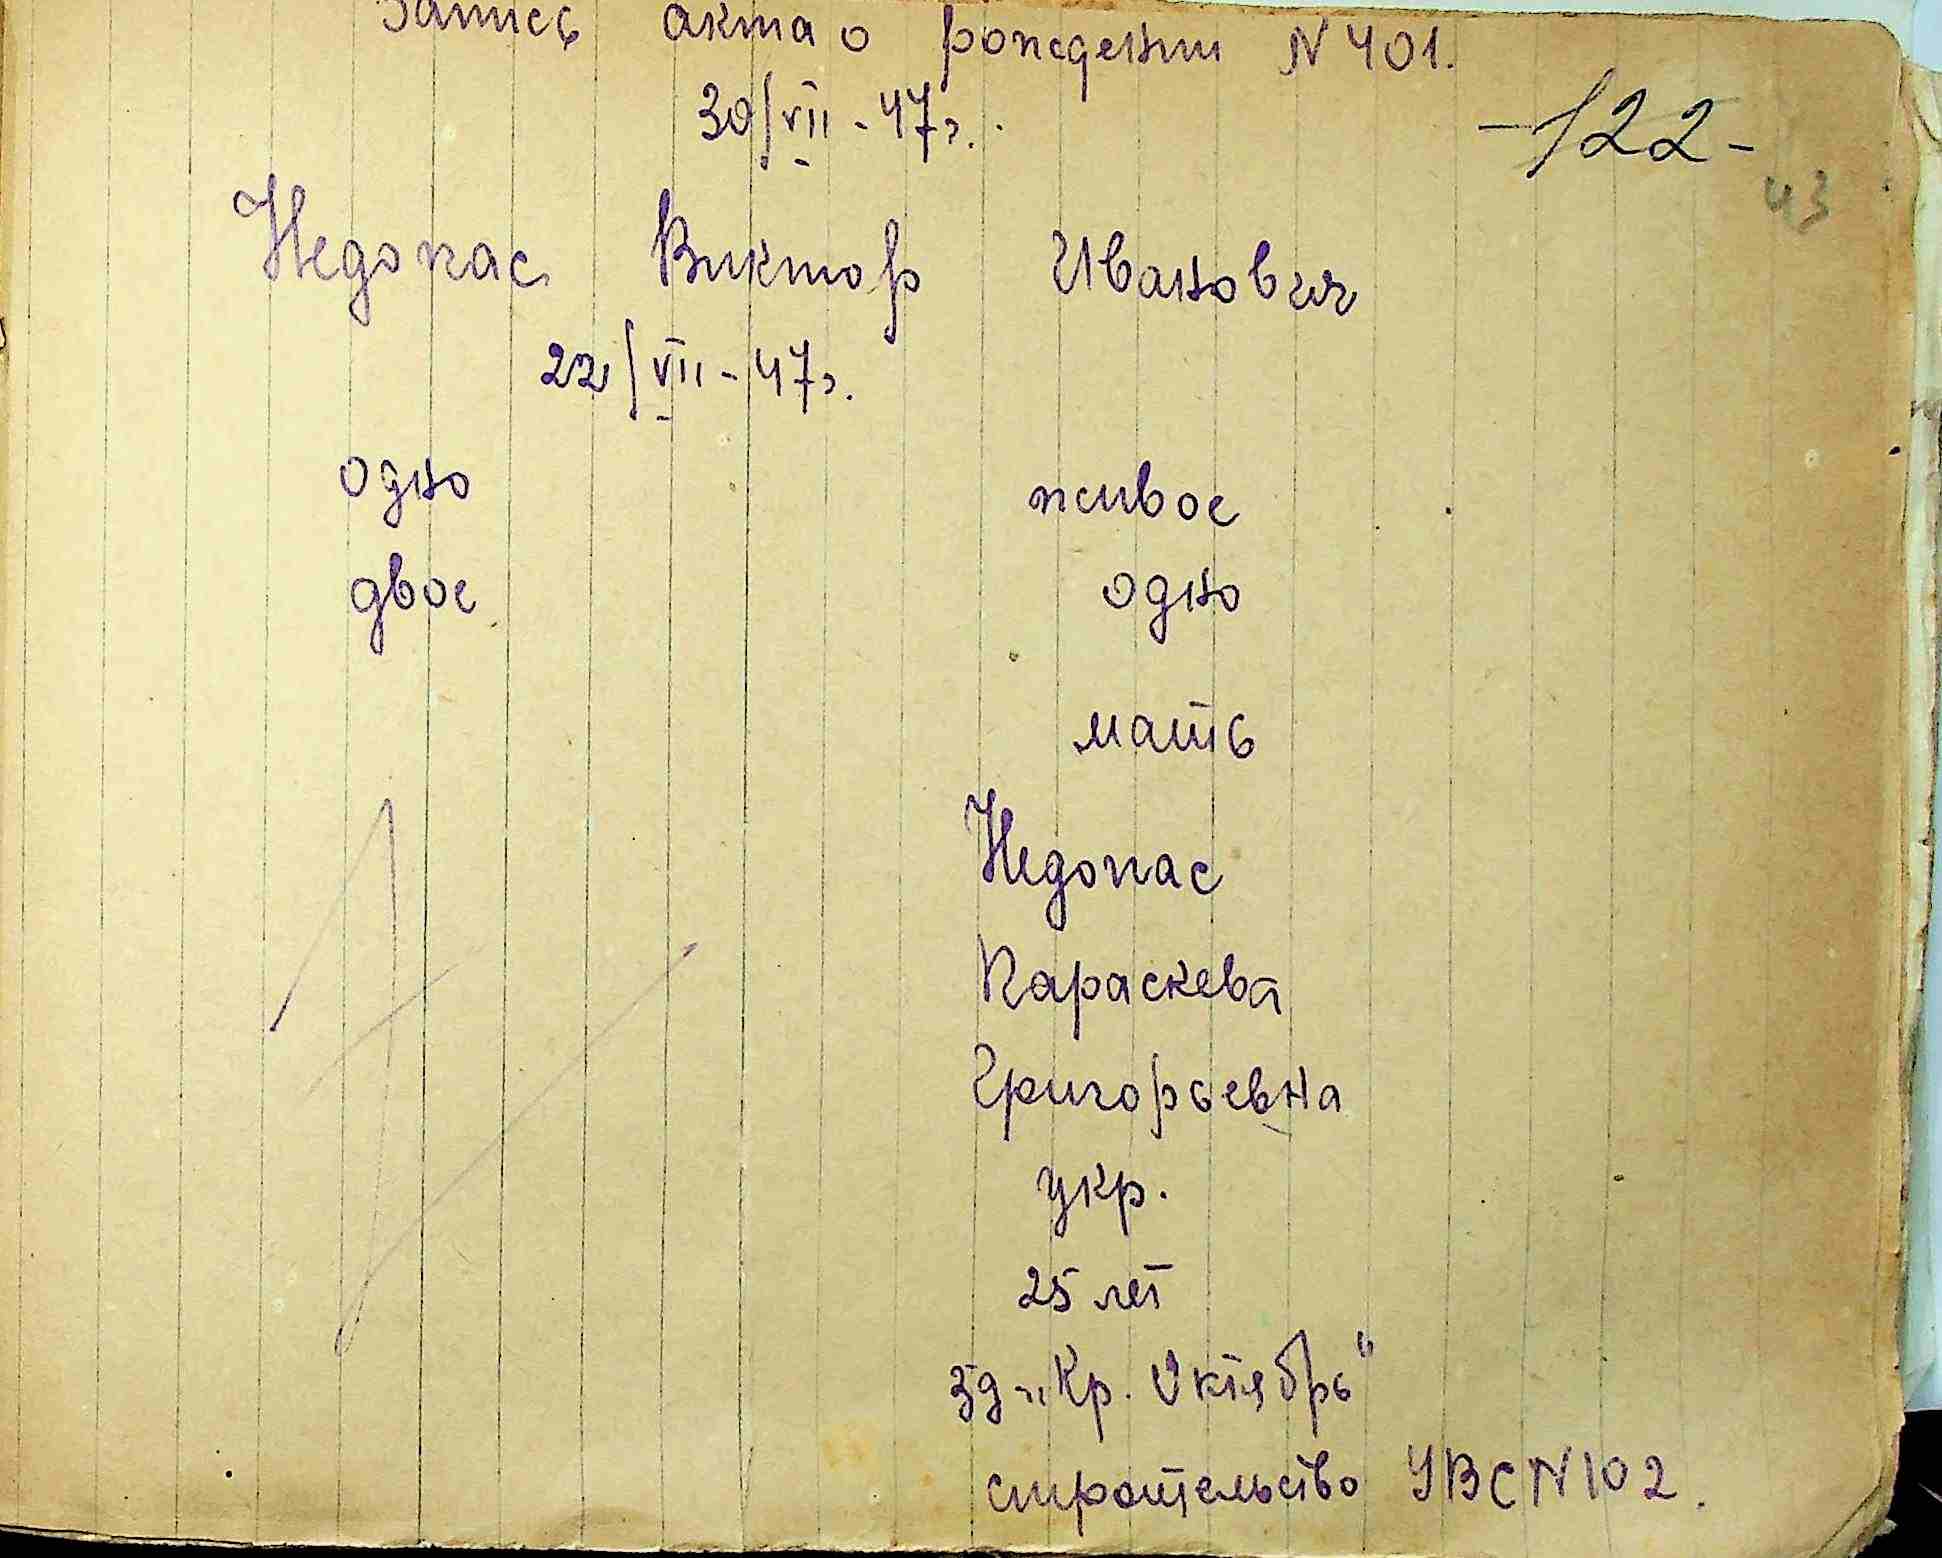 Запись акта о рождении N 401.
30/VII - 47г.
-122-
43
Недопас Виктор Иванович
22/VII - 47г.
одно живое
двое одно
мать
Недопас
Параскева
Григорьевна
укр.
25 лет
зд „Кр. Октябрь"
строительство УВСN102.